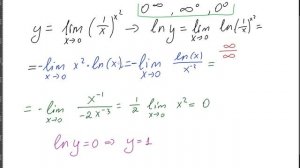 0^∞, ∞^0, 0^0
y = lim_{x→0} (1/x)^{x^2} → ln y = lim_{x→0} ln (1/x)^{x^2} =
= -lim_{x→0} x^2 · ln(x) = -lim_{x→0} ln(x)/x^{-2} = ∞/∞
= -lim_{x→0} x^{-1}/(-2x^{-3}) = 1/2 lim_{x→0} x^2 = 0
ln y = 0 ⇒ y = 1